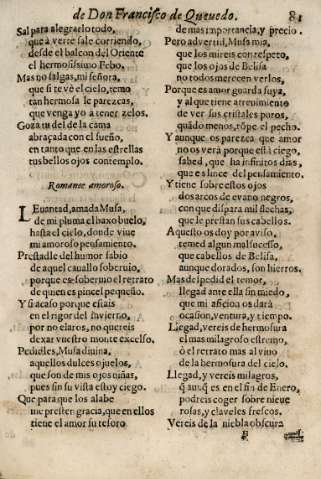 de Don Francisco de Queuedo. 81
Sal para alegrarlo todo,
que à verte sale corriendo,
desde el balcon del Oriente
el hermosissimo Febo,
Mas no salgas, mi señora,
que si te vè el cielo, temo
tan hermosa le parezcas,
que venga yo a tener zelos.
Goza tu del de la cama
abraçada con el sueño,
en tanto que en las estrellas
tus bellos ojos contemplo.
Romance amoroso.
LEuantad, amada Musa,
de mi pluma el baxo buelo,
hasta el cielo, donde viue
mi amoroso pensamiento.
Prestadle del humor sabio
de aquel cauallo soberuio,
porque es soberuio el retrato
de quien es pincel pequeño.
Y si acaso porque estais
en el rigor del Inuierno,
por no elaros, no quereis
dexar vuestro monte excelso.
Pedidles, Musa diuina,
aquellos dulces ojuelos,
que son de mis ojos niñas,
pues sin su vista estoy ciego.
Que para que los alabe
me prestẽ gracia, que en ellos
tiene el amor su tesoro
de mas importancia, y precio.
Pero aduertid, Musa mia,
que los mireis con respeto,
que los ojos de Belisa
no todos merecen verlos,
Porque es amor guarda suya,
y al que tiene atreuimiento
de ver sus cristales puros,
quãdo menos, rõpe el pecho.
Y aunque os parezca que amor
no os verà porque està ciego,
sabed, que ha infinitos dias,
que es lince del pensamiento.
Y tiene sobre estos ojos
dos arcos de euano negros,
con que dispara mil flechas,
que le prestan sus cabellos.
Aquesto os doy por auiso,
temed algun mal sucesso,
que cabellos de Belisa,
aunque dorados, son hierros.
Mas despedid el temor,
llegad ante ella sin miedo,
que mi aficion os darà
ocasion, ventura, y tiempo.
Llegad, vereis de hermosura
el mas milagroso estremo,
ò el retrato mas al viuo
de la hermosura del cielo.
Llegad, y vereis milagros,
q̃ aunq̃ es en el fin de Enero,
podreis coger sobre nieue
rosas, y claueles frescos.
Vereis de la niebla obscura